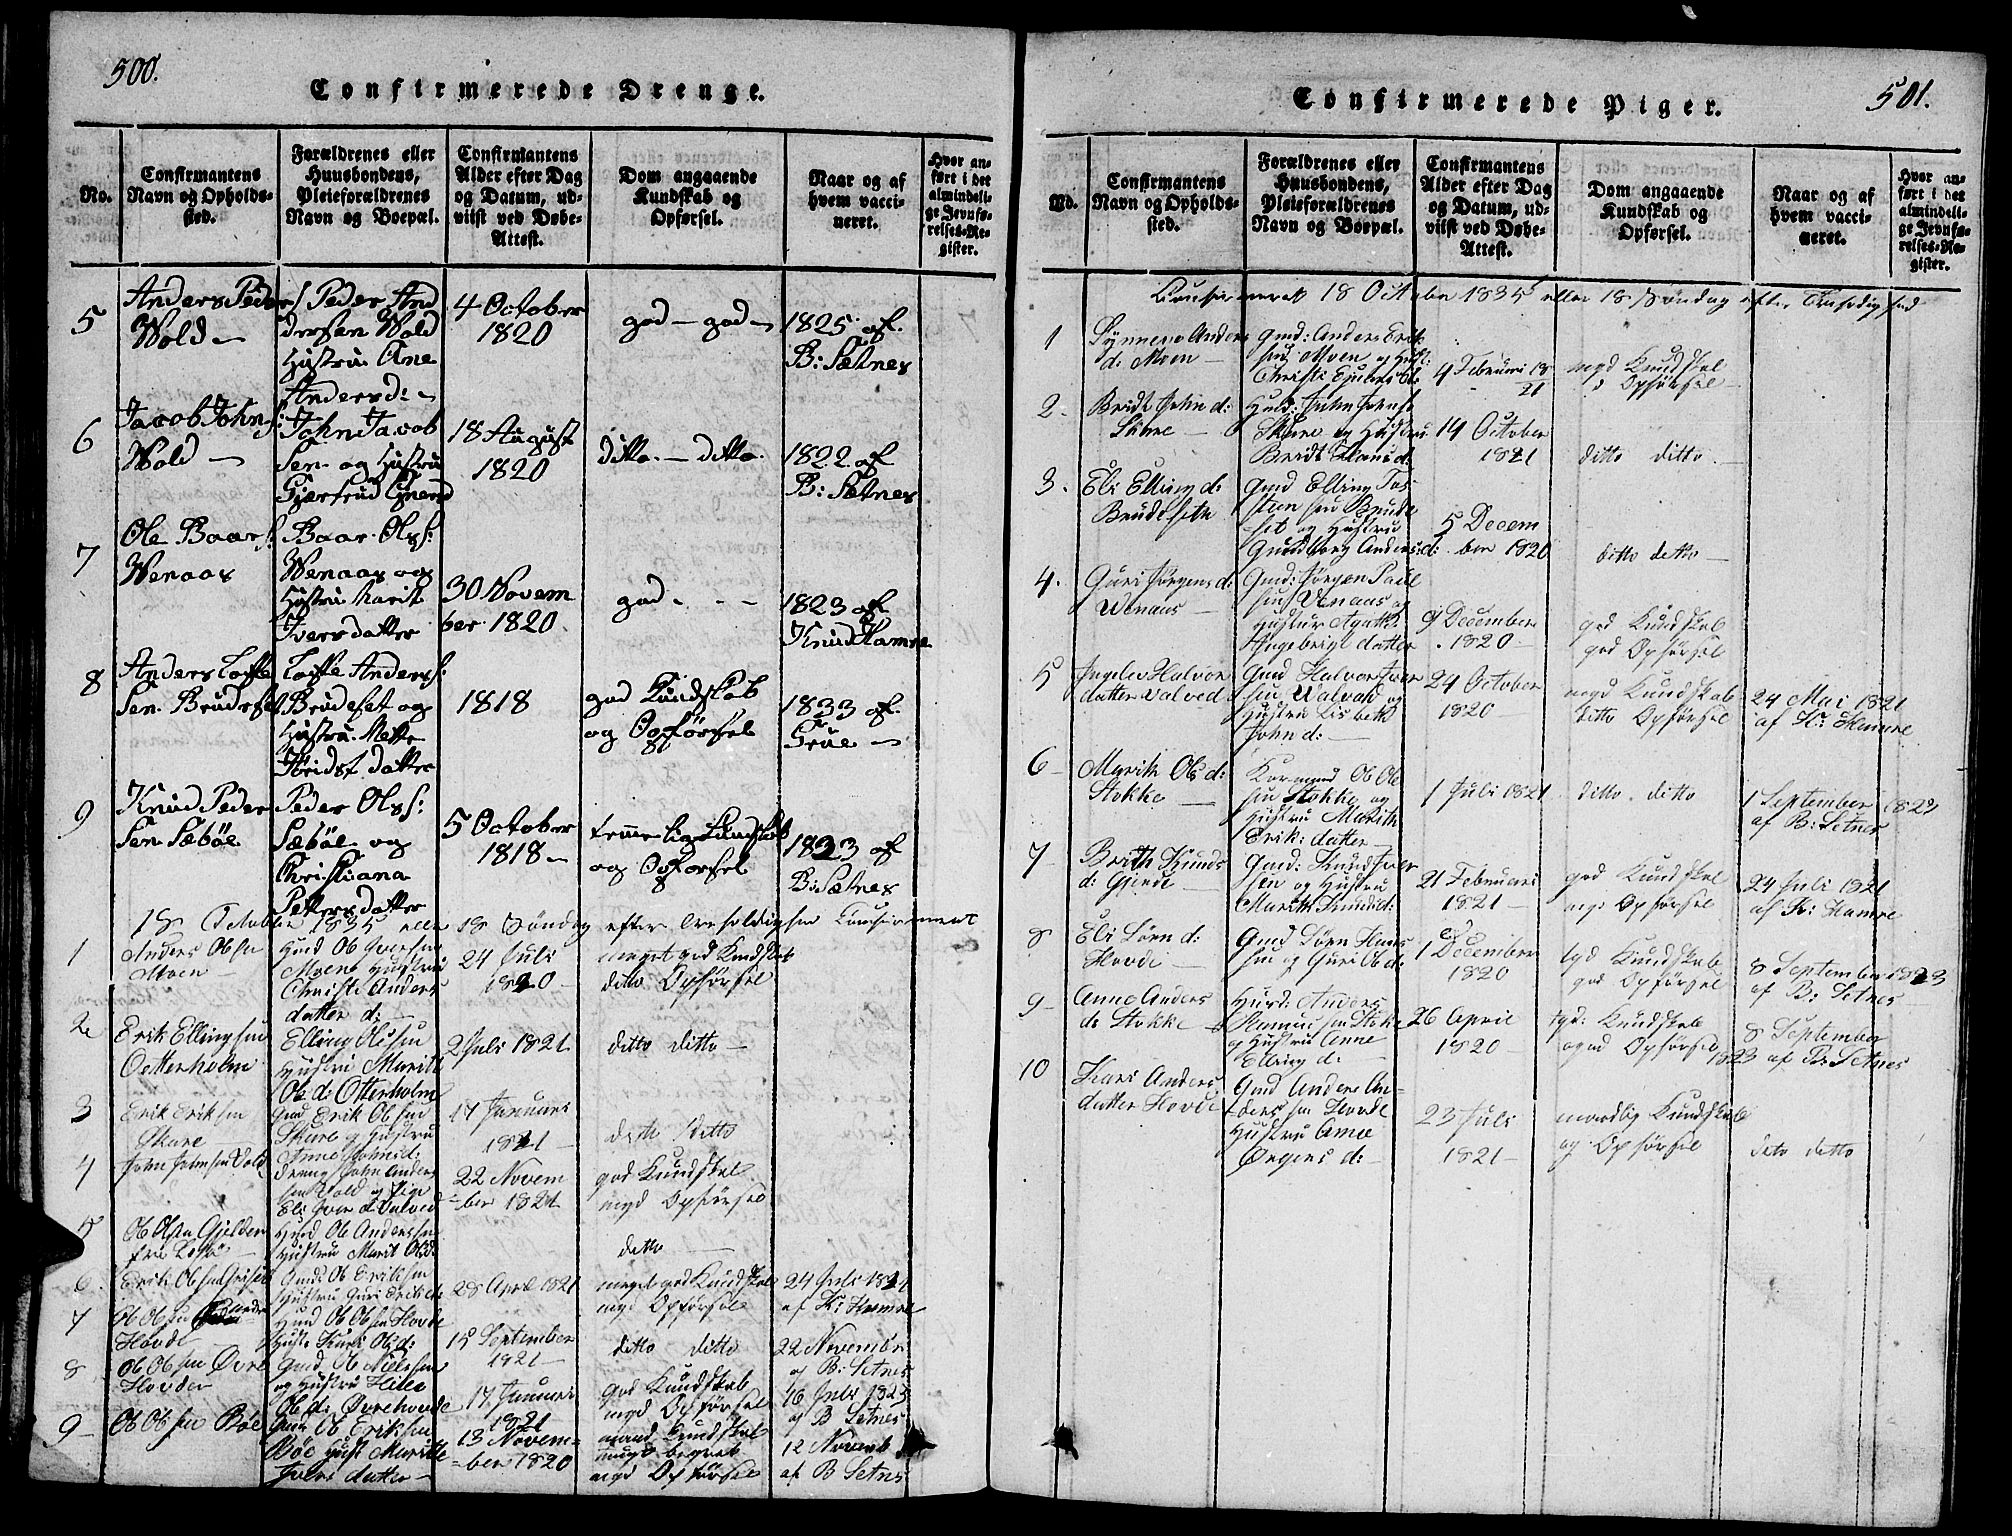 500.
Confirmerede Drenge.
No.
Confirmantens Navn og Opholdssted.
Forældrenes eller Huusbondens, Pleieforældrenes Navn og Boepæl.
Confirmantens Alder efter Dag og Datum, udviist ved Døbe-Attest.
Dom angaaende Kundskab og Opførsel.
Naar og af hvem vaccineret.
Hvor anført i det almindelige Jevnførelses-Register.
5
Anders Peders
Wold
Peder Anddersen Wold
Hustru Ane
Andersd:
4 October
1820
god - god
1825 af
B: Sætnes
6
Jacob Johns:
Wold
John Jacobsen og Hustru
Giærtrud
18 August
1820
ditto - ditto
1822 af
B: Sætnes
7
Ole Baars:
Wenaas
Baar Ols:
Wenaas og
Hustru Marit
Iversdatter
30 Novem
ber 1820
god
1823 af
Knud Hamre
8
Anders Loftesen Brudeset
Lofte Anders:
Brudeset og
Hustru Mette
datter
1818
god Kundskab
og Opførsel
1833 af
Grue
9
Knud Pedersen Sæbøe
Peder Ols:
Sæbøe og
Christiana
Pettersdatter
5 October
1818
temmelig Kundskab
og Opførsel
1823 af
B: Sætnes
18 October 1835 eller 18 Søndag efter Trefoldighed Confirmeret
1
Anders Olsen
Moen
Huusd Ole Iversen
Moen Hustru
Christi Anders
datter
24 Juli
1820
meget god Kundskab
ditto Opførsel
2
Erik Ellingsen
Oetterholm
Elling Olsen
Hustru Marit
Ole d: Otterholm
2 Juli 1821
ditto ditto
3
Erik Eriksen
Skare
Gmd Erik Olsen
Skare og Hustru
Anne Johns d:
17 Januari
1821
ditto ditto
4
John Johnsen Vold
Dreng John Andersen Vold og Pige
Eli Iver d: Valved
22 Novem
-ber 1821
god Kundskab
mgd Opførsel
5
Ole Olsen Gjelden
Huusd Ole Anderssen
Hustru Marit Olsd:
ditto
6
Erik Olsen Griset
Gmd: Ole Eriksen
Hustru Guri Erik d:
28 April 1821
meget god Kundskab
mgd Opførsel
24 Juli 1821
af K: Hamre
7
Ole Olsen
Hovde
Huusd Ole Olsen Hovde
Hustr Kari Ols d:
15 September
1821
ditto ditto
22 November
af B: Setnes
8
Ole Olsen Øvre
Hovde
Gmd Ole Nielssen
og Hustru
Ole d: Øvrehovde
17 Januar
1821
god Kundskab
mgd Opførsel
16 Juli 1823
af B Setnes
9
Ole Olsen Bøe
Gmd Ole Eriksen
Bøe Hust Marith
Ivers datter
13 Novem-
-ber 1820
Kundskab
mgd Opførsel
12 Novemb
af B Setnes
501.
Confirmerede Piger.
No.
Confirmantens Navn og Opholdssted.
Forældrenes eller Huusbondens, Pleieforældrenes Navn og Boepæl.
Confirmantens Alder efter Dag og Datum, udviist ved Døbe-Attest.
Dom angaaende Kundskab og Opførsel.
Naar og af hvem vaccineret.
Hvor anført i det almindelige Jevnførelses-Register.
Confirmeret 18 October 1835 eller 18 Søndag efter Trefoldighed
1
Synneve Anders
d: Moen
Gmd: Anders Eriksen Moen og Hust:
Christi
4 Februari 18
21
mgd Kundskab
Opførsel
2
Bridt John d:
Skare
Huusd: John Johns
Skare og Hustru
Bridt
14 October
1821
ditto ditto
3.
Eli Elling d:
Brudeseth
Gmd Elling Tosteensen Brudeset og Hustru
Gundborg Anders: d:
5 Decem
ber 1820
ditto ditto
4.
Guri Jørgens d:
Wenaas
Gmd: Jørgen Paulsen Venaas og
Hustru Agathe
Ingebrigt datter
9 December
1820
god Kundskab
god Opførsel
5
Ingelev Halvor
datter Valved
Gmd Halvor Iversen Walved og
Hustru Lisbeth
John d:
24 October
1820
mgd Kundskab
ditto Opførsel
24 Mai 1821
af K: Hamre
6
Marith Ols d:
Stokke
Ole Olesen Stokke og
Hustru Marith
Erik: datter
1 Juli 1821
ditto ditto
1 September 1822
af B: Setnes
7
Brith Knuds
d: Gjerde
Gmd: Knud Iversen og Hustru
Marith Knuds d:
21 Februari
1821
god Kundskab
mgd Opførsel
24 Juli 1821
af K: Hamre
8
Eli Sørn d:
Hovde
Gmd Sørn Hanssen og Guri Ole d:
1 December
1820
tgd Kundskab
god Opførsel
8 September 1823
af B: Setnes
9
Anne Anders
d: Stokke
Huusd: Anders
Rasmussen Stokke
og Hustru Anne
Elling d:
26 April
1820
tgd: Kundskab
og god Opførsel
8 September
1823 af B: Setnes
10
Kari Anders
datter Hovde
Gmd Anders An-
-derssen Hovde
Hustru Anne
Jørgens d:
23 Juli
1821
maadelig Kundskab
og Opførsel
ditto ditto